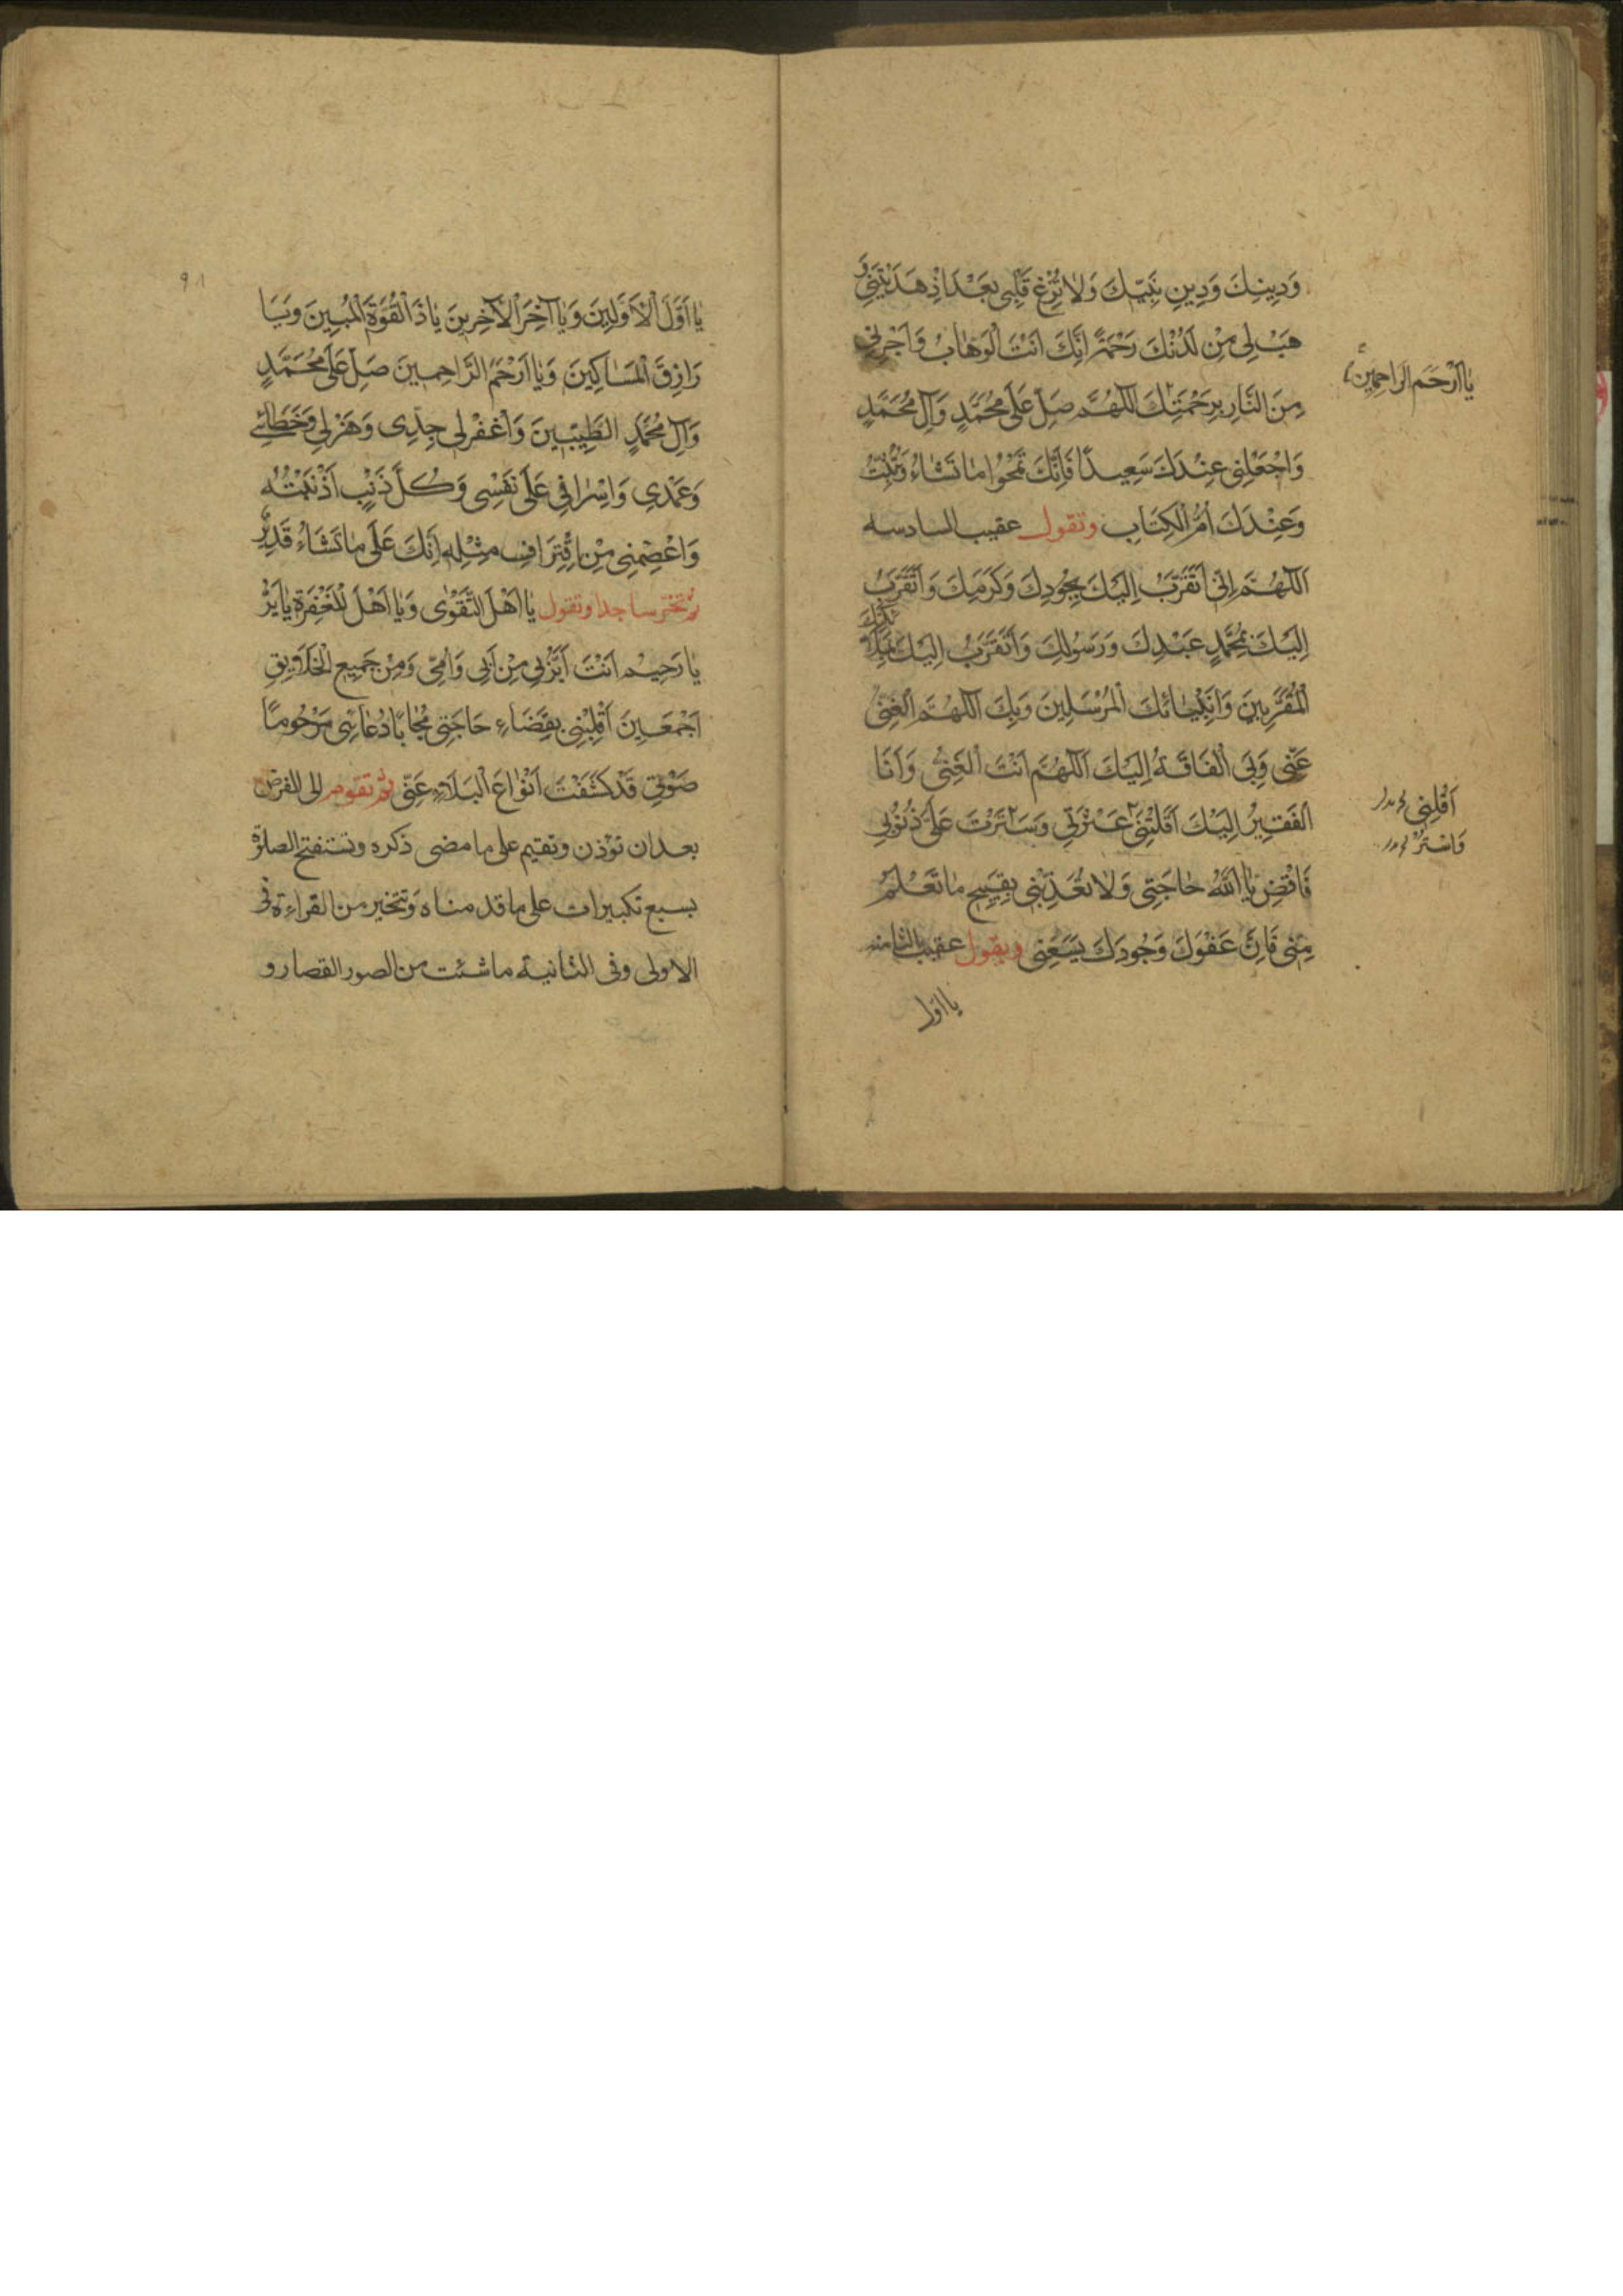 وَدِينِكَ وَدِينِ نَبِيِّكَ وَلَا تُزِغْ قَلْبِي بَعْدَ اِذْ هَدَيْتَنِي وَ
هَبْ لِي مِنْ لَدُنْكَ رَحْمَةً اِنَّكَ اَنْتَ الْوَهَّابُ وَاَجِرْنِي
يَا اَرْحَمَ الرَّاحِمِينَ
مِنَ النَّارِ بِرَحْمَتِكَ اَللّٰهُمَّ صَلِّ عَلَى مُحَمَّدٍ وَآلِ مُحَمَّدٍ
وَاجْعَلْنِي عِنْدَكَ سَعِيدًا فَاِنَّكَ تَمْحُوا مَا تَشَاءُ وَتُثْبِتُ
وَعِنْدَكَ اُمُّ الْكِتَابِ وتقول عقيب السادسه
اَللّٰهُمَّ اِنِّي اَتَقَرَّبُ اِلَيْكَ بِجُودِكَ وَكَرَمِكَ وَاَتَقَرَّبُ
اِلَيْكَ بِمُحَمَّدٍ عَبْدِكَ وَرَسُولِكَ وَاَتَقَرَّبُ اِلَيْكَ بِمَلَائِكَتِكَ
الْمُقَرَّبِينَ وَاَنْبِيَائِكَ الْمُرْسَلِينَ وَبِكَ اَللّٰهُمَّ الْغِنٰى
عَنِّي وَبِيَ الْفَاقَةُ اِلَيْكَ اَللّٰهُمَّ اَنْتَ الْغَنِيُّ وَاَنَا
اَقِلْنِي
الْفَقِيرُ اِلَيْكَ اَقَلْتَنِي عَثْرَتِي وَسَتَرْتَ عَلَيَّ ذُنُوبِي
وَاسْتُرْ
فَاقْضِ يَا اَللّٰهُ حَاجَتِي وَلَا تُعَذِّبْنِي بِقَبِيحِ مَا تَعْلَمُ
مِنِّي فَاِنَّ عَفْوَكَ وَجُودَكَ يَسَعُنِي ويقول عقيب الثامنه
يا اوّل
٩١
يَا اَوَّلَ الْاَوَّلِينَ وَيَا آخِرَ الْآخِرِينَ يَا ذَا الْقُوَّةِ الْمُبِينَ وَيَا
رَازِقَ الْمَسَاكِينَ وَيَا اَرْحَمَ الرَّاحِمِينَ صَلِّ عَلَى مُحَمَّدٍ
وَآلِ مُحَمَّدٍ الطَّيِّبِينَ وَاغْفِرْ لِي جِدِّي وَهَزْلِي وَخَطَائِي
وَعَمْدِي وَاِسْرَافِي عَلَى نَفْسِي وَكُلَّ ذَنْبٍ اَذْنَبْتُهُ
وَاعْصِمْنِي مِنِ اقْتِرَافِ مِثْلِهِ اِنَّكَ عَلَى مَا تَشَاءُ قَدِيرٌ
ثم تخرّ ساجدا وتقول يَا اَهْلَ التَّقْوٰى وَيَا اَهْلَ الْمَغْفِرَةِ يَا بَرُّ
يَا رَحِيمُ اَنْتَ اَبَرُّ بِي مِنْ اَبِي وَاُمِّي وَمِنْ جَمِيعِ الْخَلَايِقِ
اَجْمَعِينَ اَقْلِبْنِي بِقَضَاءِ حَاجَتِي مُجَابًا دُعَائِي مَرْحُومًا
صَوْتِي قَدْ كَشَفْتَ اَنْوَاعَ الْبَلَاءِ عَنِّي ثم تقوم الى الفرض
بعد ان تؤذن وتقيم على ما مضى ذكره وتستفتح الصلوة
بسبع تكبيرات على ما قدمناه وتتخير من القراءة فى
الاولى وفى الثانية ما شئت من الصور القصار و